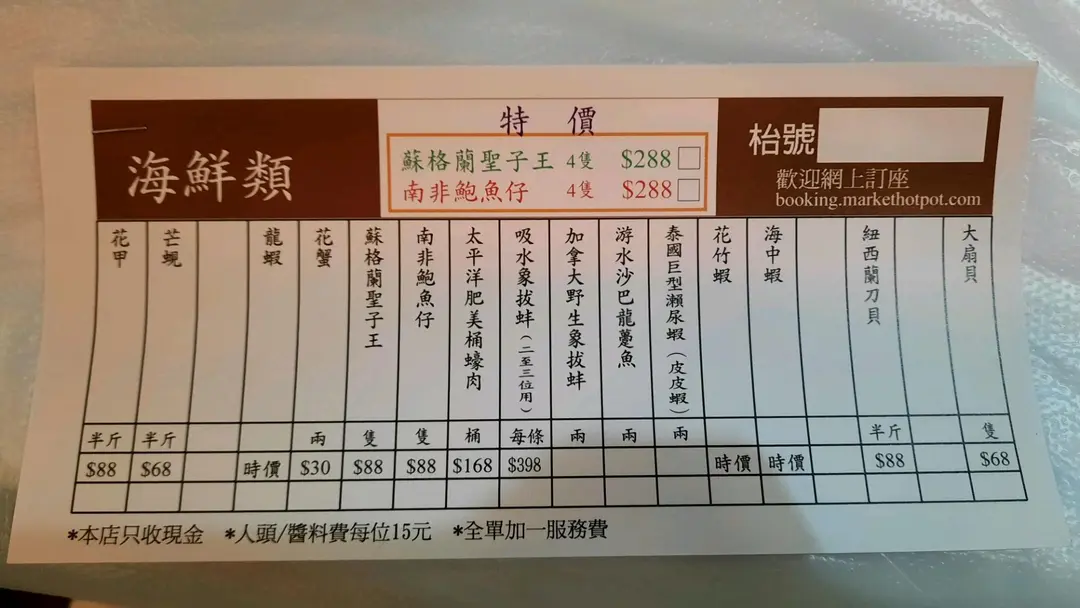 海鮮類
特價
蘇格蘭聖子王 4隻 $288
南非鮑魚仔 4隻 $288
枱號
歡迎網上訂座
booking.markethotpot.com
大扇貝 隻 $68
紐西蘭刀貝 半斤 $88
海中蝦 時價
花竹蝦 時價
泰國巨型瀨尿蝦(皮皮蝦) 兩
游水沙巴龍躉魚 兩
加拿大野生象拔蚌 兩
吸水象拔蚌(二至三位用) 每條 $398
太平洋肥美桶蠔肉 桶 $168
南非鮑魚仔 隻 $88
蘇格蘭聖子王 隻 $88
花蟹 兩 $30
龍蝦 時價
芒蜆 半斤 $68
花甲 半斤 $88
*本店只收現金 *人頭/醬料費每位15元 *全單加一服務費